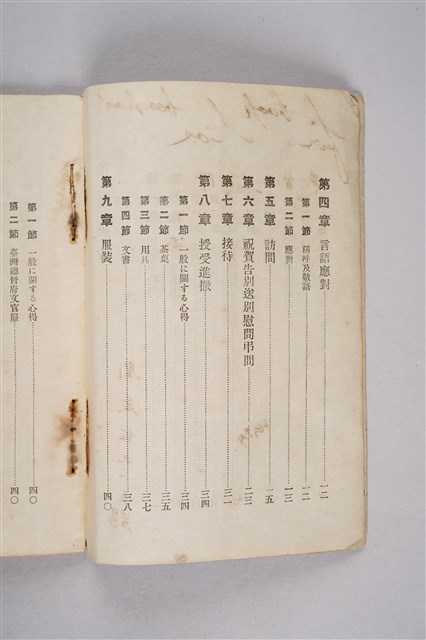 第四章 言語應對……一二
第一節 稱呼及敬語……一二
第二節 應對……一三
第五章 訪問……一五
第六章 祝賀告別送別慰問弔問……二三
第七章 接待……三一
第八章 授受進撤……三四
第一節 一般に關する心得……三四
第二節 茶菓……三五
第三節 用具……三七
第四節 文書……三八
第九章 服裝……四〇
第一節 一般に關する心得……四〇
第二節 臺灣總督府文官服……四〇